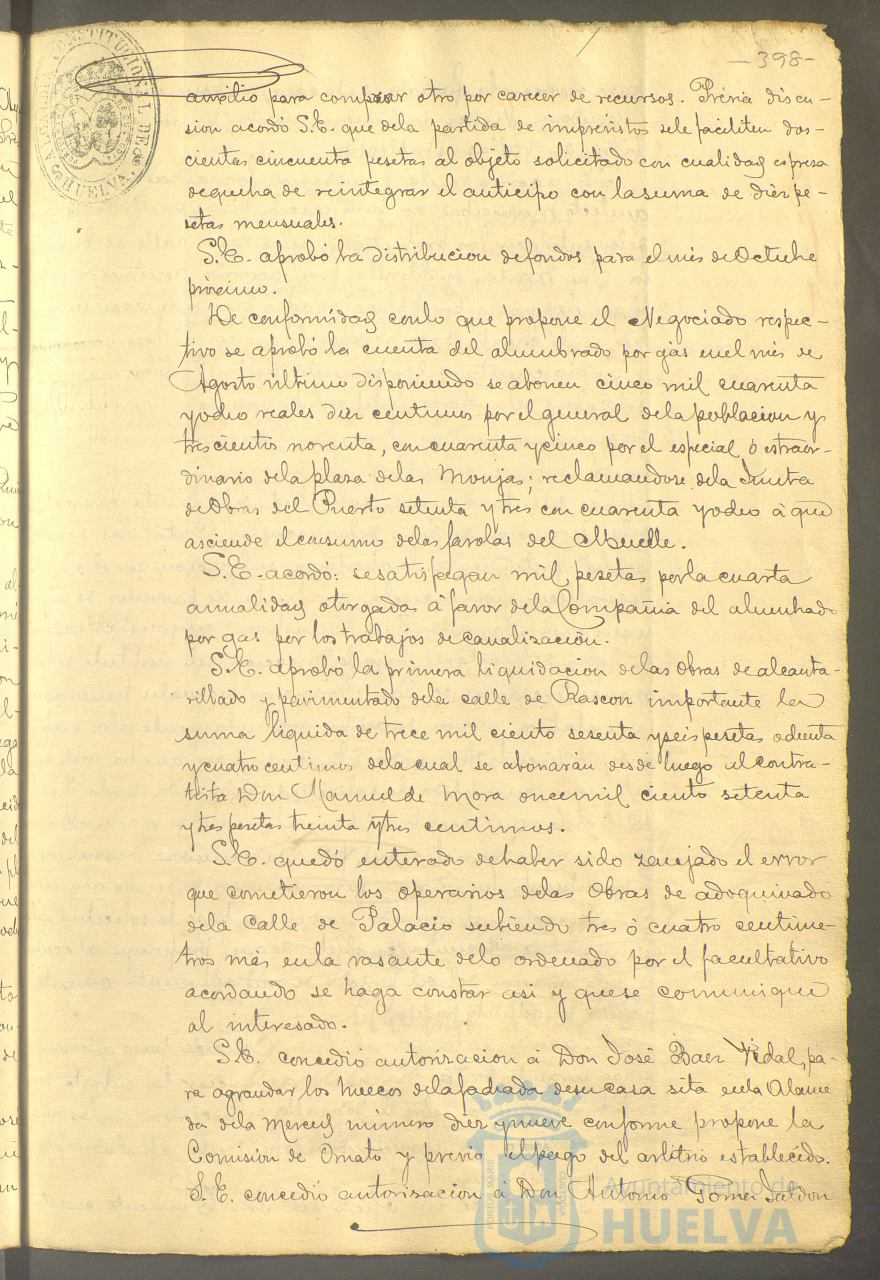 -398-
CONSTITUCIONAL DE
HUELVA
auxilio para comprar otro por carecer de recursos. Prévia discu-
sion acordó S.E. que dela partida de imprevistos sele faciliten dos-
cientas cincuenta pesetas al objeto solicitado con cualidad espresa
dequeha de reintegrar el anticipo con lasuma de diez pe-
setas mensuales.
S.E. aprobó la distribucion defondos para el mes de Octubre
próximo.
De conformidad conlo que propone el Negociado respec-
tivo se aprobó la cuenta del alumbrado por gás enel mes de
Agosto último disponiendo se abonen cinco mil cuarenta
yocho reales diez centimos por el general dela poblacion y
trescientos noventa, con cuarenta ycinco por el especial ó estraor-
dinario dela plaza delas Monjas; reclamandose dela Junta
de Obras del Puerto setenta y tres con cuarenta yocho á que
asciende el consumo delas farolas del Muelle.
S.E. acordó: sesatisfagan mil pesetas porla cuarta
anualidad otorgada á favor dela Compañia del alumbrado
por gas por los trabajos de canalización.
S.E. aprobó la primera liquidacion delas obras de alcanta-
rillado y pavimentado dela calle de Rascon importante la
suma liquida de trece mil ciento sesenta yseis pesetas ochenta
ycuatro centimos dela cual se abonarán desde luego al contra-
tista Don Manuel de Mora oncemil ciento setenta
ytres pesetas treinta ytres centimos.
S.E. quedó enterado dehaber sido zanjado el error
que cometieron los operarios delas Obras de adoquinado
dela Calle de Palacio subiendo tres ó cuatro centime-
tros más enla rasante delo ordenado por el facultativo
acordando se haga constar asi y quese comunique
al interesado.
S.E. concedió autorizacion á Don José Baez Vidal, pa-
ra agrandar los huecos dela fachada desu casa sita enla Alame
da dela Merced número diez ynueve conforme propone la
Comision de Ornato y previo el pago del arbitrio establecido.
S.E. concedió autorizacion á Don Antonio Gomez Saldon
Ayuntamiento de
HUELVA